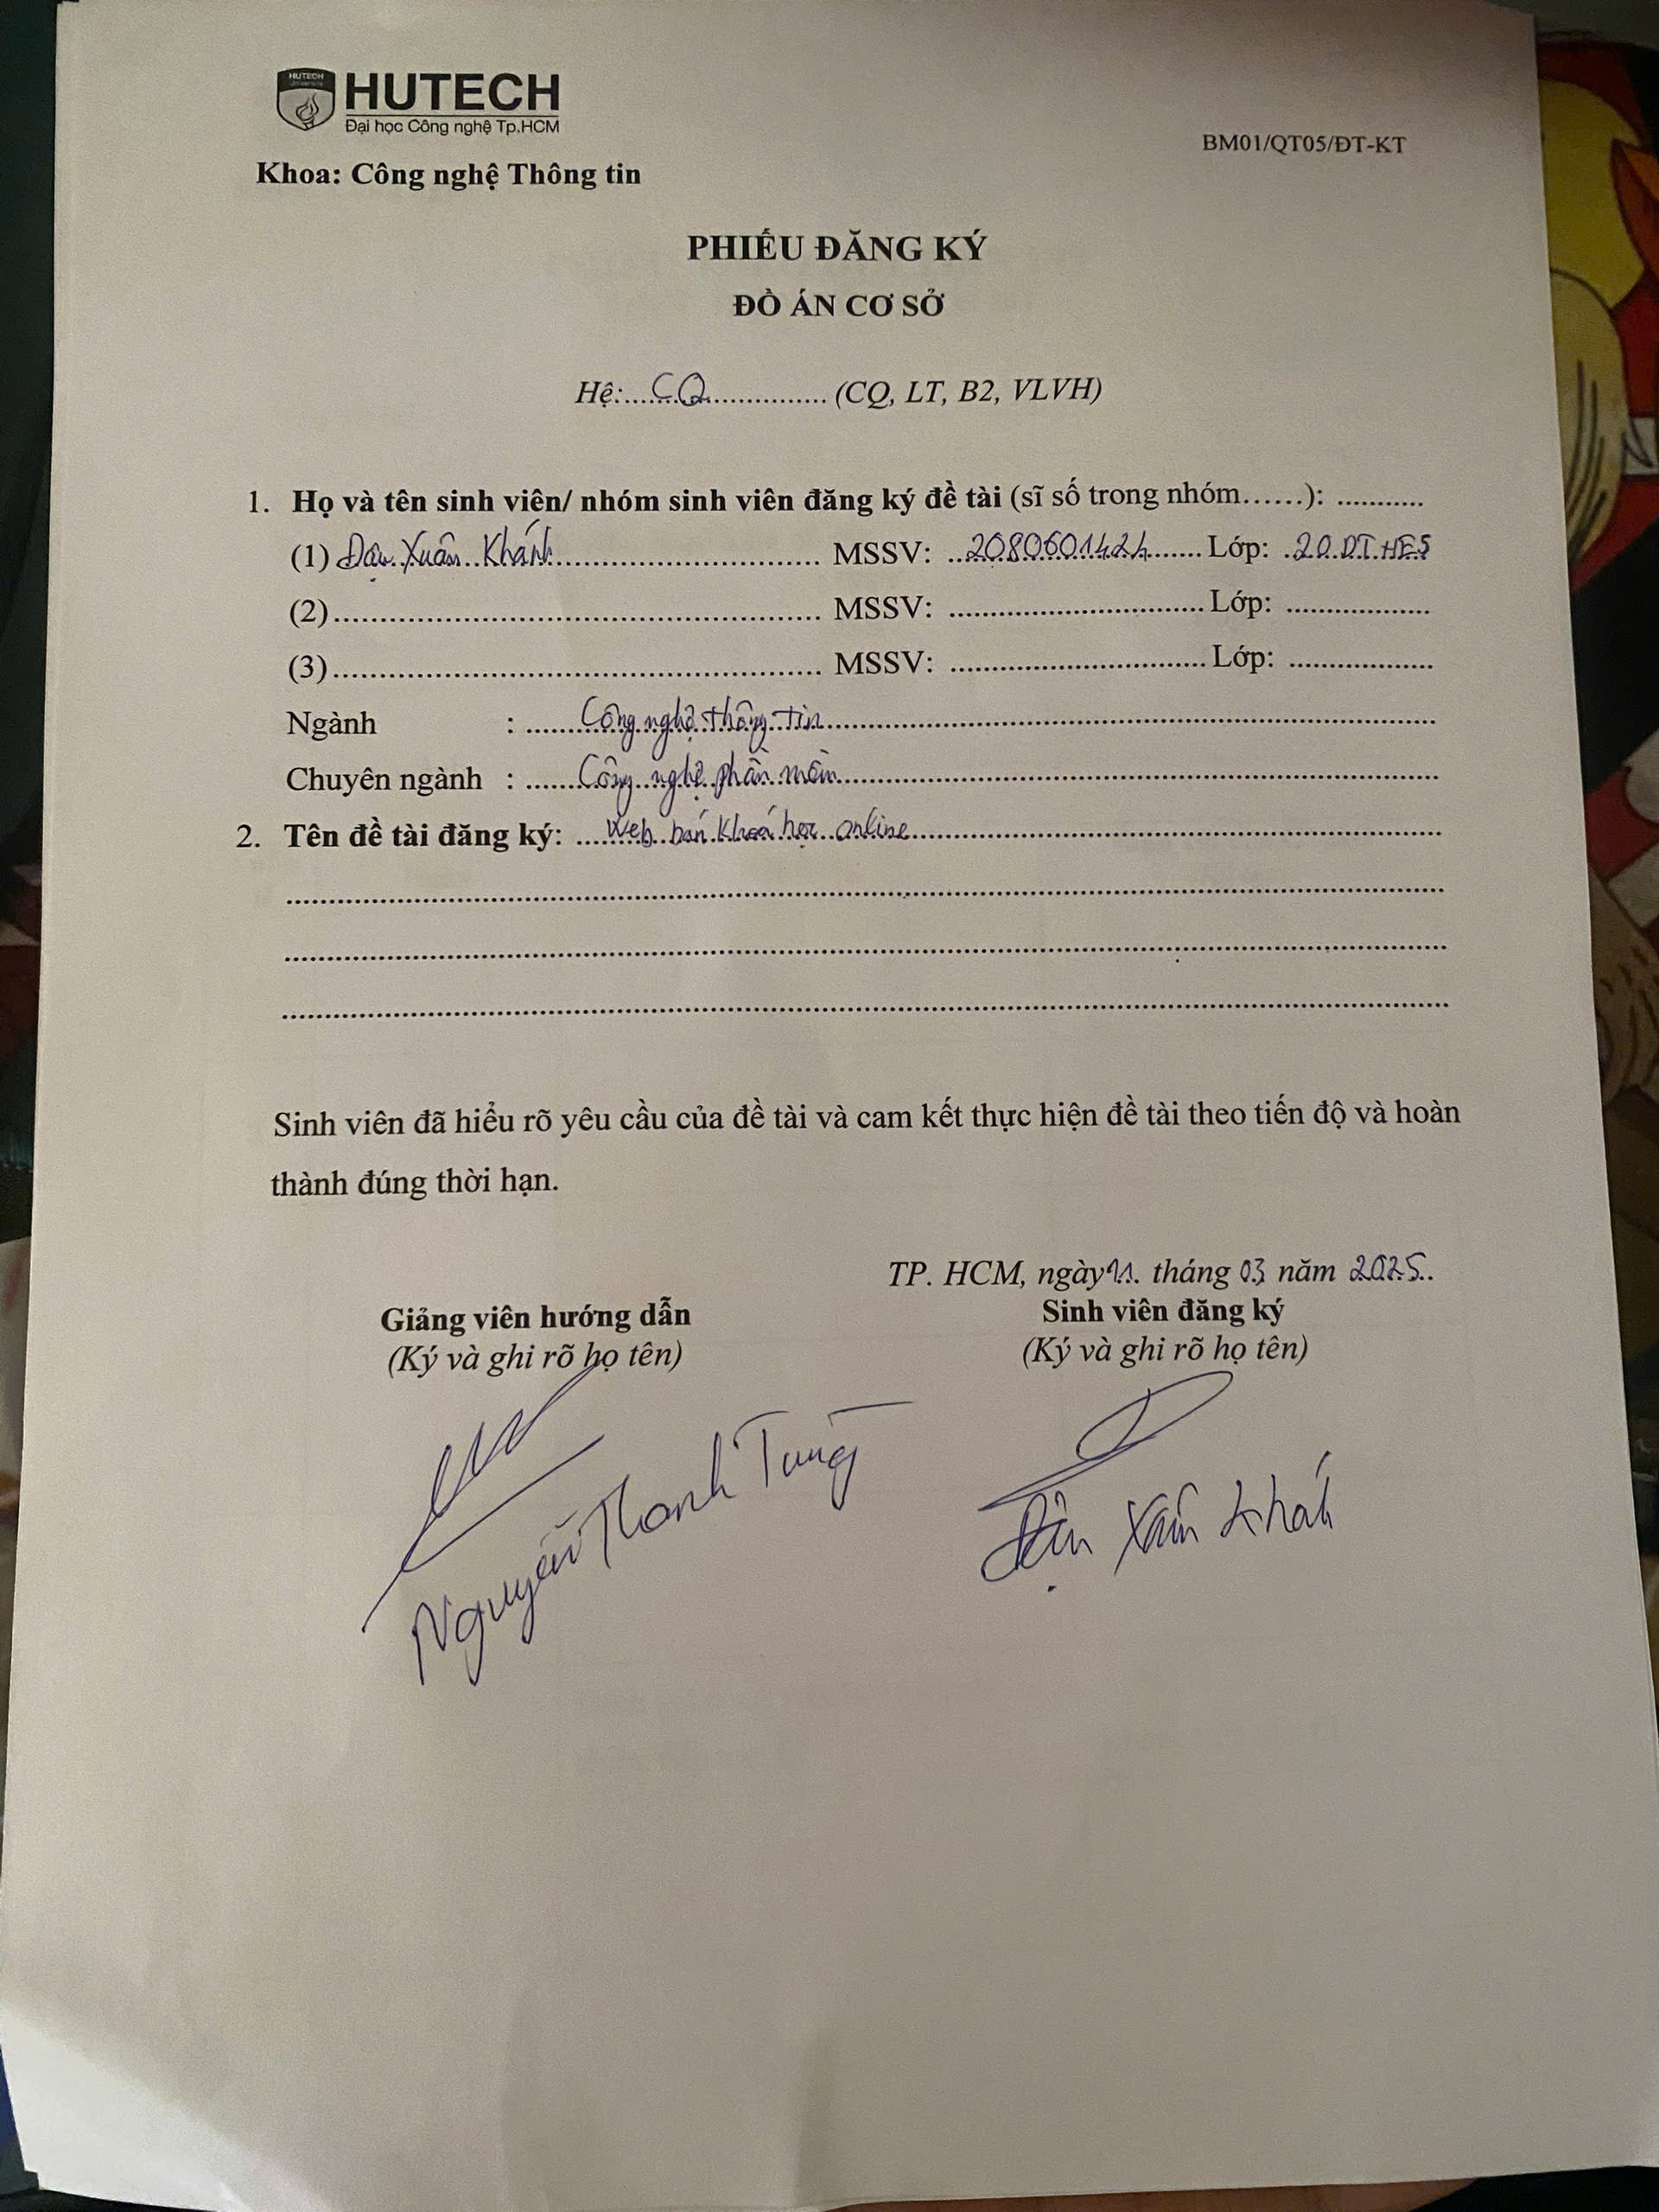 HUTECH
HUTECH
Đại học Công nghệ Tp.HCM
BM01/QT05/ĐT-KT
Khoa: Công nghệ Thông tin
PHIẾU ĐĂNG KÝ
ĐỒ ÁN CƠ SỞ
Hệ:......CQ................ (CQ, LT, B2, VLVH)
1. Họ và tên sinh viên/ nhóm sinh viên đăng ký đề tài (sĩ số trong nhóm……): ...........
(1) Đậu Xuân Khánh.................................. MSSV: ...2080601424....... Lớp: .20DTHE5
(2)............................................................. MSSV: ................................ Lớp: ..................
(3)............................................................. MSSV: ................................ Lớp: ..................
Ngành : .......Công nghệ thông tin...............................................................
Chuyên ngành : .......Công nghệ phần mềm...............................................................
2. Tên đề tài đăng ký: ....Web bán khoá học online..................................................................
..................................................................................................................................................
..................................................................................................................................................
..................................................................................................................................................
Sinh viên đã hiểu rõ yêu cầu của đề tài và cam kết thực hiện đề tài theo tiến độ và hoàn
thành đúng thời hạn.
TP. HCM, ngày 11. tháng 03 năm 2025..
Giảng viên hướng dẫn Sinh viên đăng ký
(Ký và ghi rõ họ tên) (Ký và ghi rõ họ tên)
Nguyễn Thanh Tùng Đậu Xuân Khánh